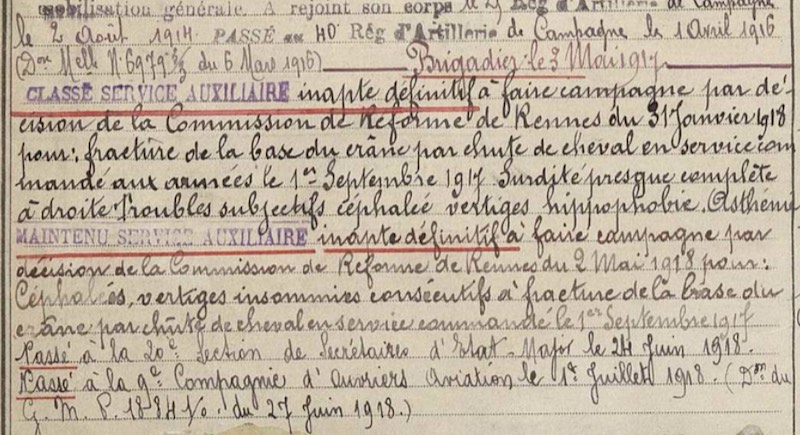 mobilisation générale. A rejoint son corps le 29 Rég d'Artillerie de Campagne
le 2 Août 1914 PASSÉ au 40 Rég d'Artillerie de Campagne le 1 Avril 1916
(Don Melle N° 6979 3/3 du 6 Mars 1916) Brigadier le 3 Mai 1917
CLASSÉ SERVICE AUXILIAIRE inapte définitif à faire campagne par dé-
cision de la Commission de Réforme de Rennes du 31 Janvier 1918
pour: fracture de la base du crâne par chute de cheval en service com
mandé aux armées le 1er Septembre 1917 Surdité presque complète
à droite Troubles subjectifs céphalée vertiges hippophobie. Asthénie
MAINTENU SERVICE AUXILIAIRE inapte définitif à faire campagne par
décision de la Commission de Réforme de Rennes du 2 Mai 1918 pour:
Céphalées, vertiges insomnies consécutifs à fracture de la base du
crâne par chute de cheval en service commandé le 1er Septembre 1917
Passé à la 20e Section de Secrétaires d'Etat-Major le 24 Juin 1918.
Passé à la 9e Compagnie d'Ouvriers Aviation le 1er Juillet 1918. (Don du
G. M. P. 1884 1/0 du 27 Juin 1918.)